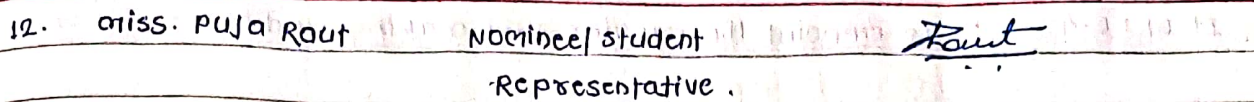 12. Miss. Puja Raut Nominee/ Student Raut
Representative.